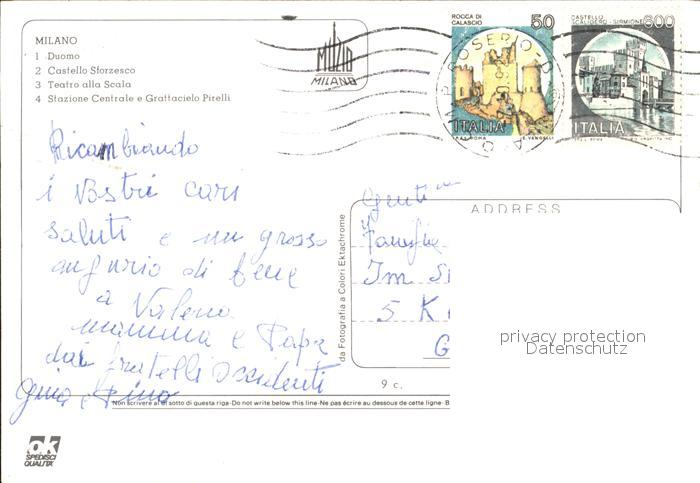 MILANO
1 Duomo
2 Castello Sforzesco
3 Teatro alla Scala
4 Stazione Centrale e Grattacielo Pirelli
MUZIO
MILANO
ROCCA DI CALASCIO
50
ITALIA
CASTELLO SCALIGERO - SIRMIONE
600
ITALIA
Ricambiando
i Vostri cari
saluti e un grosso
augurio di bene
a Valeria
mamma e Papa
dai fratelli
Gina e Pino
da Fotografia a Colori Ektachrome
ADDRESS
Gent
Famiglie
Im
5 K
G
9 c.
privacy protection
Datenschutz
Non scrivere al di sotto di questa riga-Do not write below this line-Ne pas écrire au dessous de cette ligne- B
OK
SPEDISCI
QUALITÀ